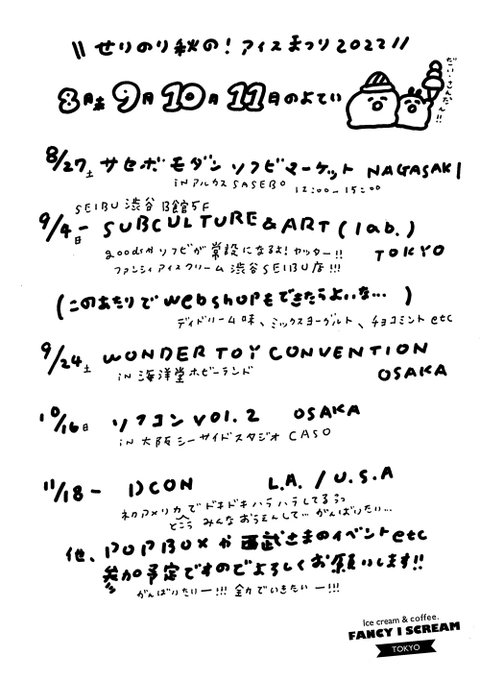 \\ せりのり秋の！アイスまつり2022 //
8月末 9月 10月 11日のよてい
8/27土 サセボモダンソフビマーケット NAGASAKI
in アルカスSASEBO 12:00〜15:00
SEIBU 渋谷 B館5F
9/4日- SUBCULTURE&ART(lab.)
goodsやソフビが常設になるよ！ヤッター!!
TOKYO
ファンシィアイスクリーム渋谷SEIBU店!!!
(このあたりでwebshopもできたらよいな…)
デイドリーム味、ミックスヨーグルト、チョコミントetc
9/24土 WONDER TOY CONVENTION
in 海洋堂ホビーランド
OSAKA
10/16日 ソフコン vol.2 OSAKA
in 大阪シーサイドスタジオ CASO
11/18- DCON L.A./U.S.A
初アメリカでドキドキハラハラしてるっ
みんなおうえんして… がんばりたい…
他、POPBOXや西武さまのイベントetc
参加予定ですのでよろしくお願いします!!
がんばりたいー!!! 全力でいきたいー!!!
Ice cream & coffee.
FANCY I SCREAM
TOKYO